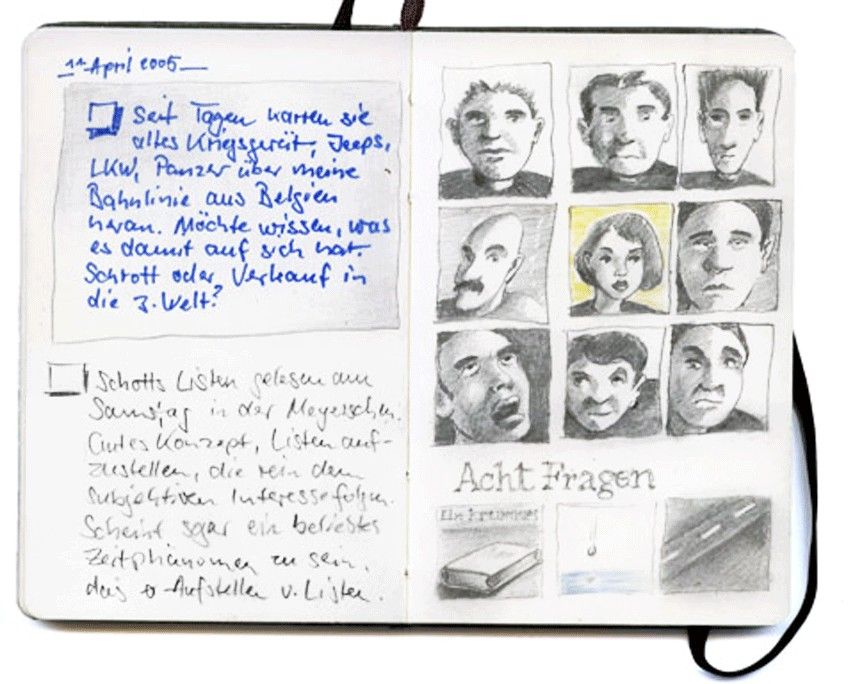 11 April 2005
Seit Tagen karren sie
altes Kriegsgereit, Jeeps,
LKW, Panzer über meine
Bahnlinie aus Belgien
heran. Möchte wissen, was
es damit auf sich hat.
Schrott oder Verkauf in
die 3. Welt?
Schotts Listen gelesen am
Samstag in der Meyerschen.
Gutes Konzept, Listen auf-
zustellen, die rein dem
subjektiven Interesse folgen.
Scheint sogar ein beliebtes
Zeitphänomen zu sein,
das Aufstellen v. Listen.
Acht Fragen